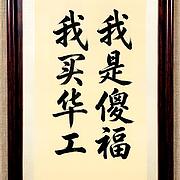 我是傻福
我买华工